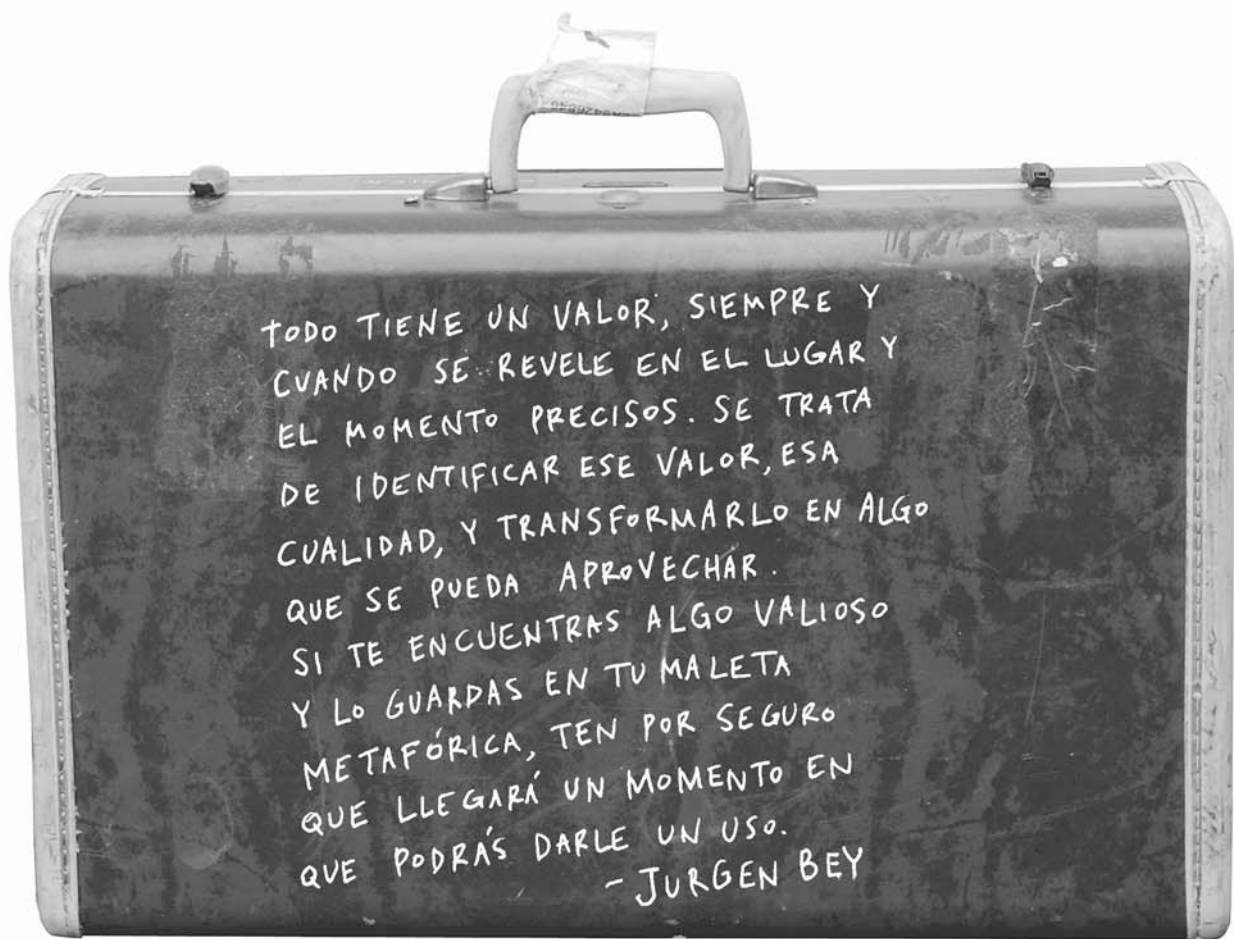 TODO TIENE UN VALOR, SIEMPRE Y
CUANDO SE REVELE EN EL LUGAR Y
EL MOMENTO PRECISOS. SE TRATA
DE IDENTIFICAR ESE VALOR, ESA
CUALIDAD, Y TRANSFORMARLO EN ALGO
QUE SE PUEDA APROVECHAR.
SI TE ENCUENTRAS ALGO VALIOSO
Y LO GUARDAS EN TU MALETA
METAFÓRICA, TEN POR SEGURO
QUE LLEGARÁ UN MOMENTO EN
QUE PODRÁS DARLE UN USO.
- JURGEN BEY